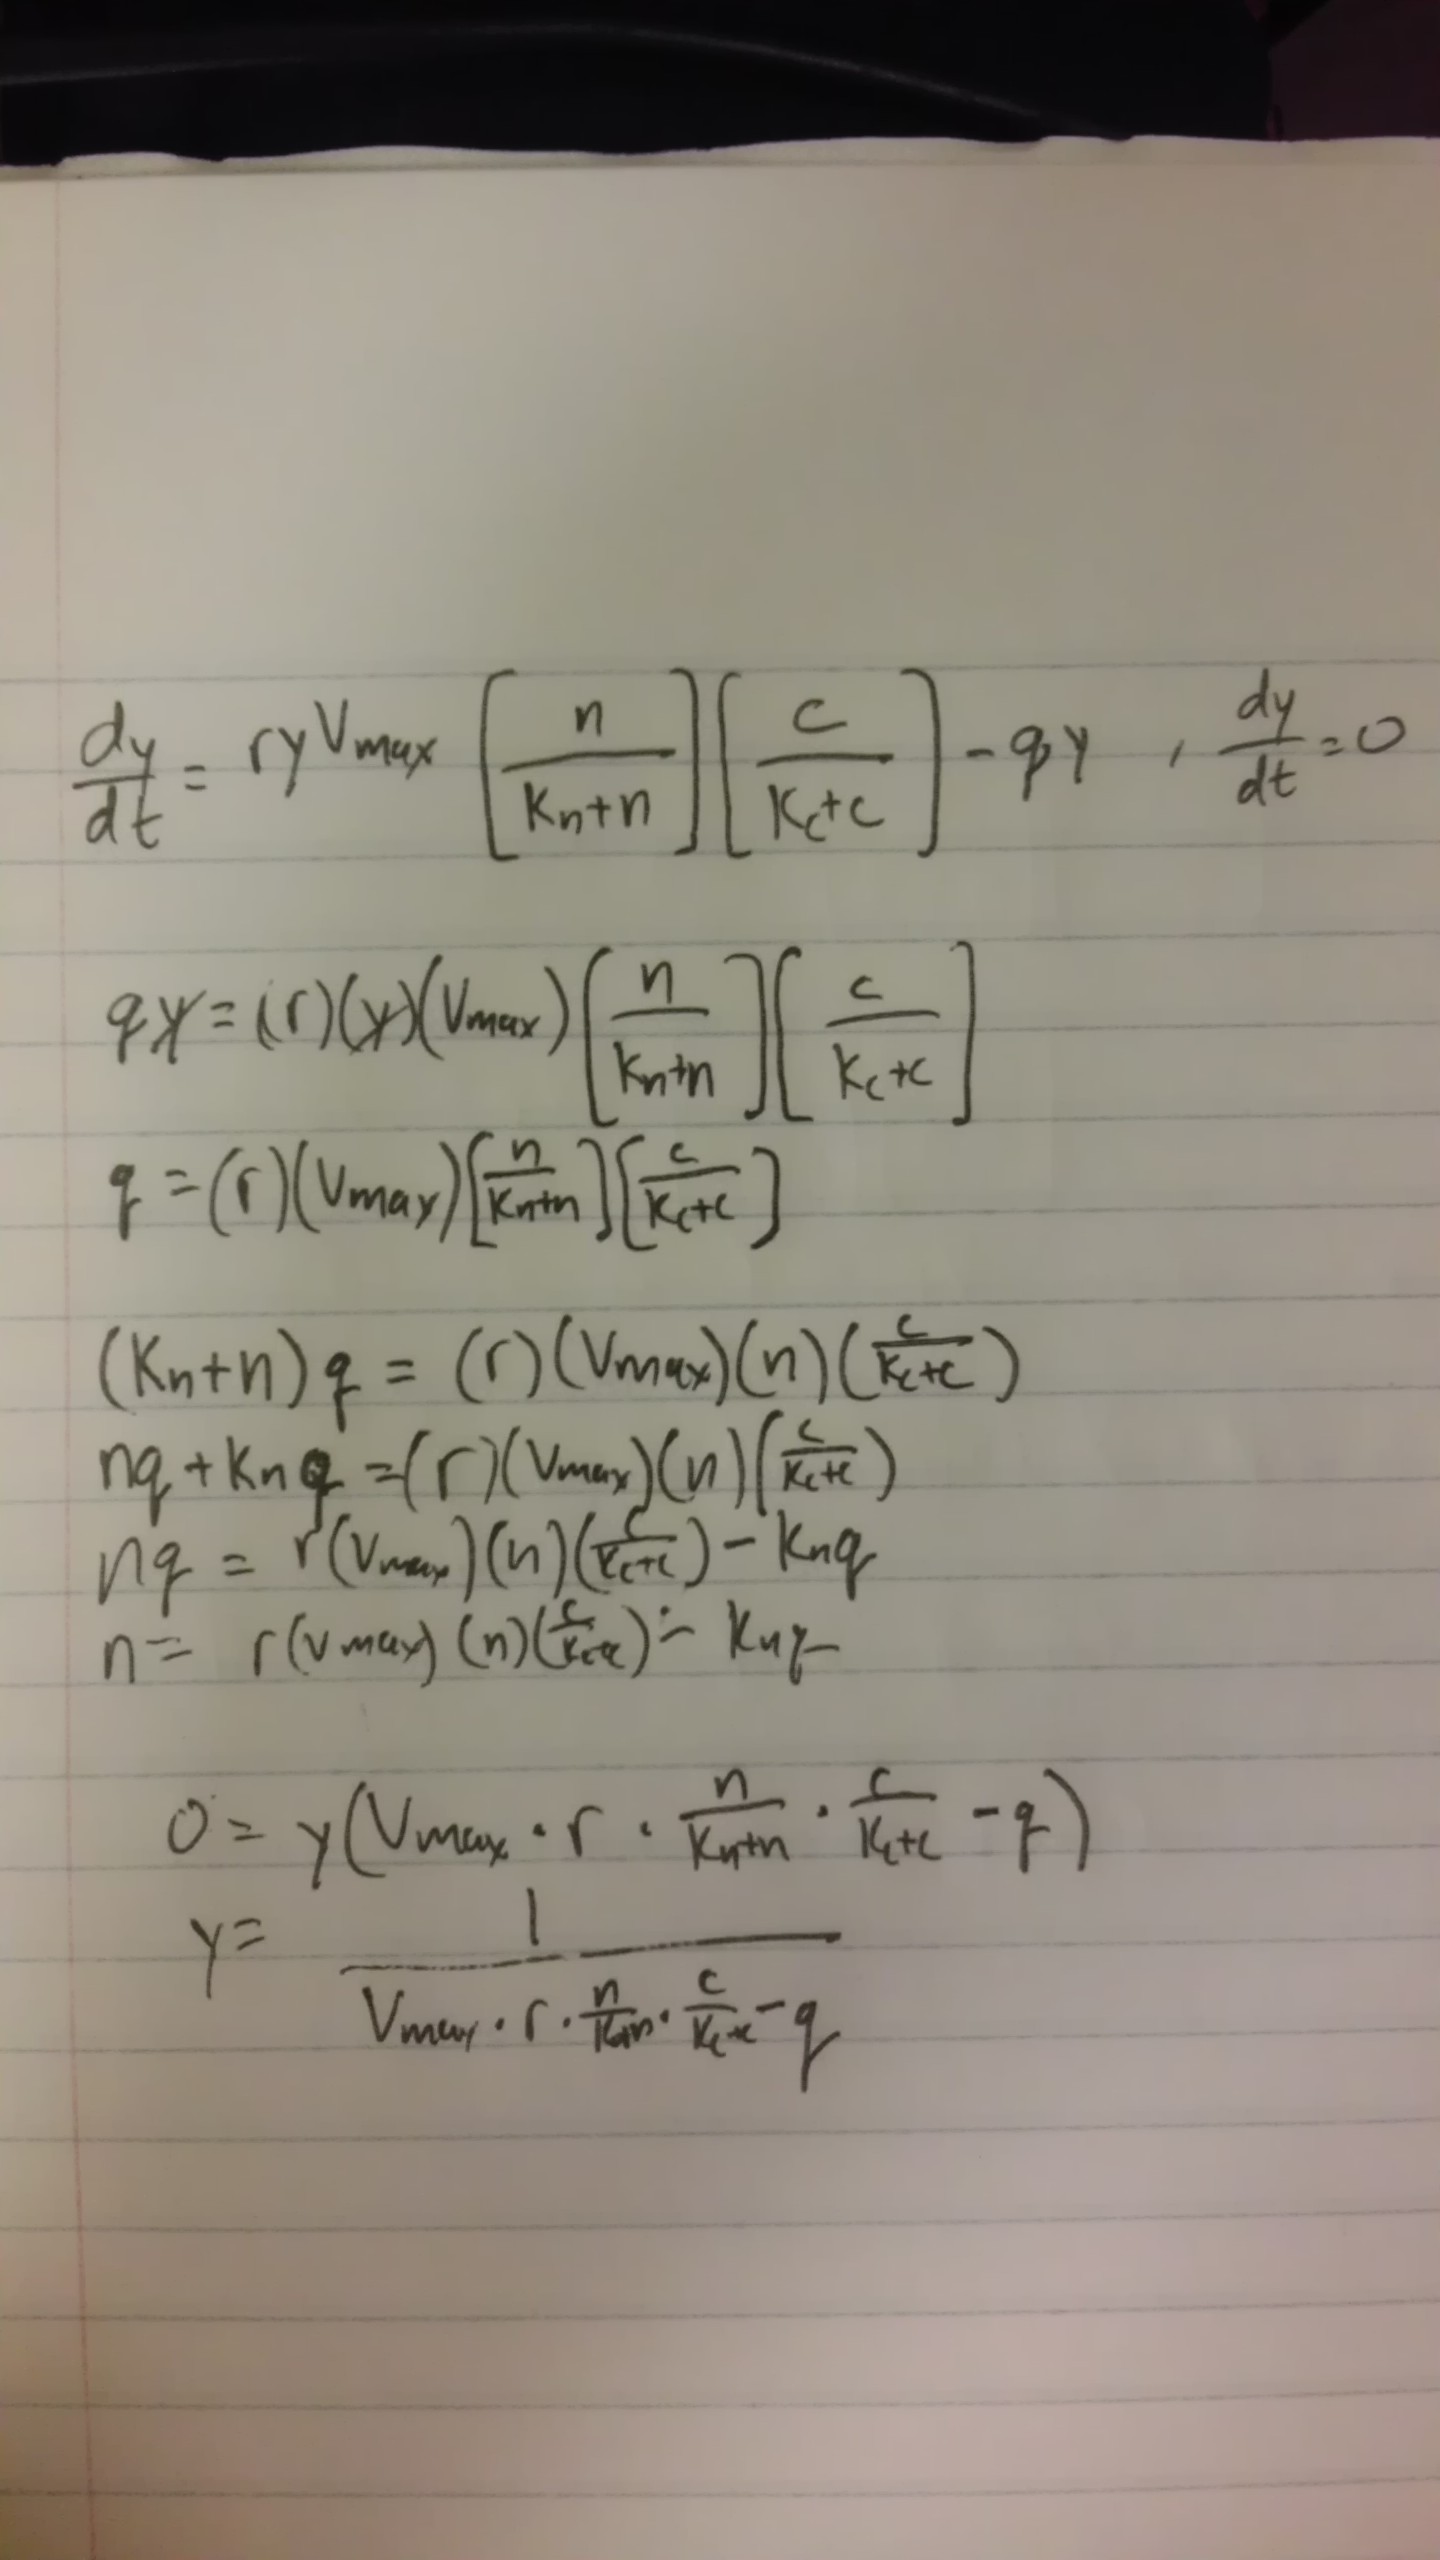 dy/dt = ryVmax [n/(Kn+n)] [c/(Kc+c)] - qy , dy/dt = 0
qy = (r)(y)(Vmax) [n/(Kn+n)] [c/(Kc+c)]
q = (r)(Vmax) [n/(Kn+n)] [c/(Kc+c)]
(Kn+n) q = (r)(Vmax)(n)(c/(Kc+c))
nq + Knq = (r)(Vmax)(n)(c/(Kc+c))
nq = r(Vmax)(n)(c/(Kc+c)) - Knq
n = r(Vmax)(n)(c/(Kc+c)) ÷ Knq
0 = y(Vmax · r · n/(Kn+n) · c/(Kc+c) - q)
y = 1/(Vmax · r · n/(Kn+n) · c/(Kc+c) - q)